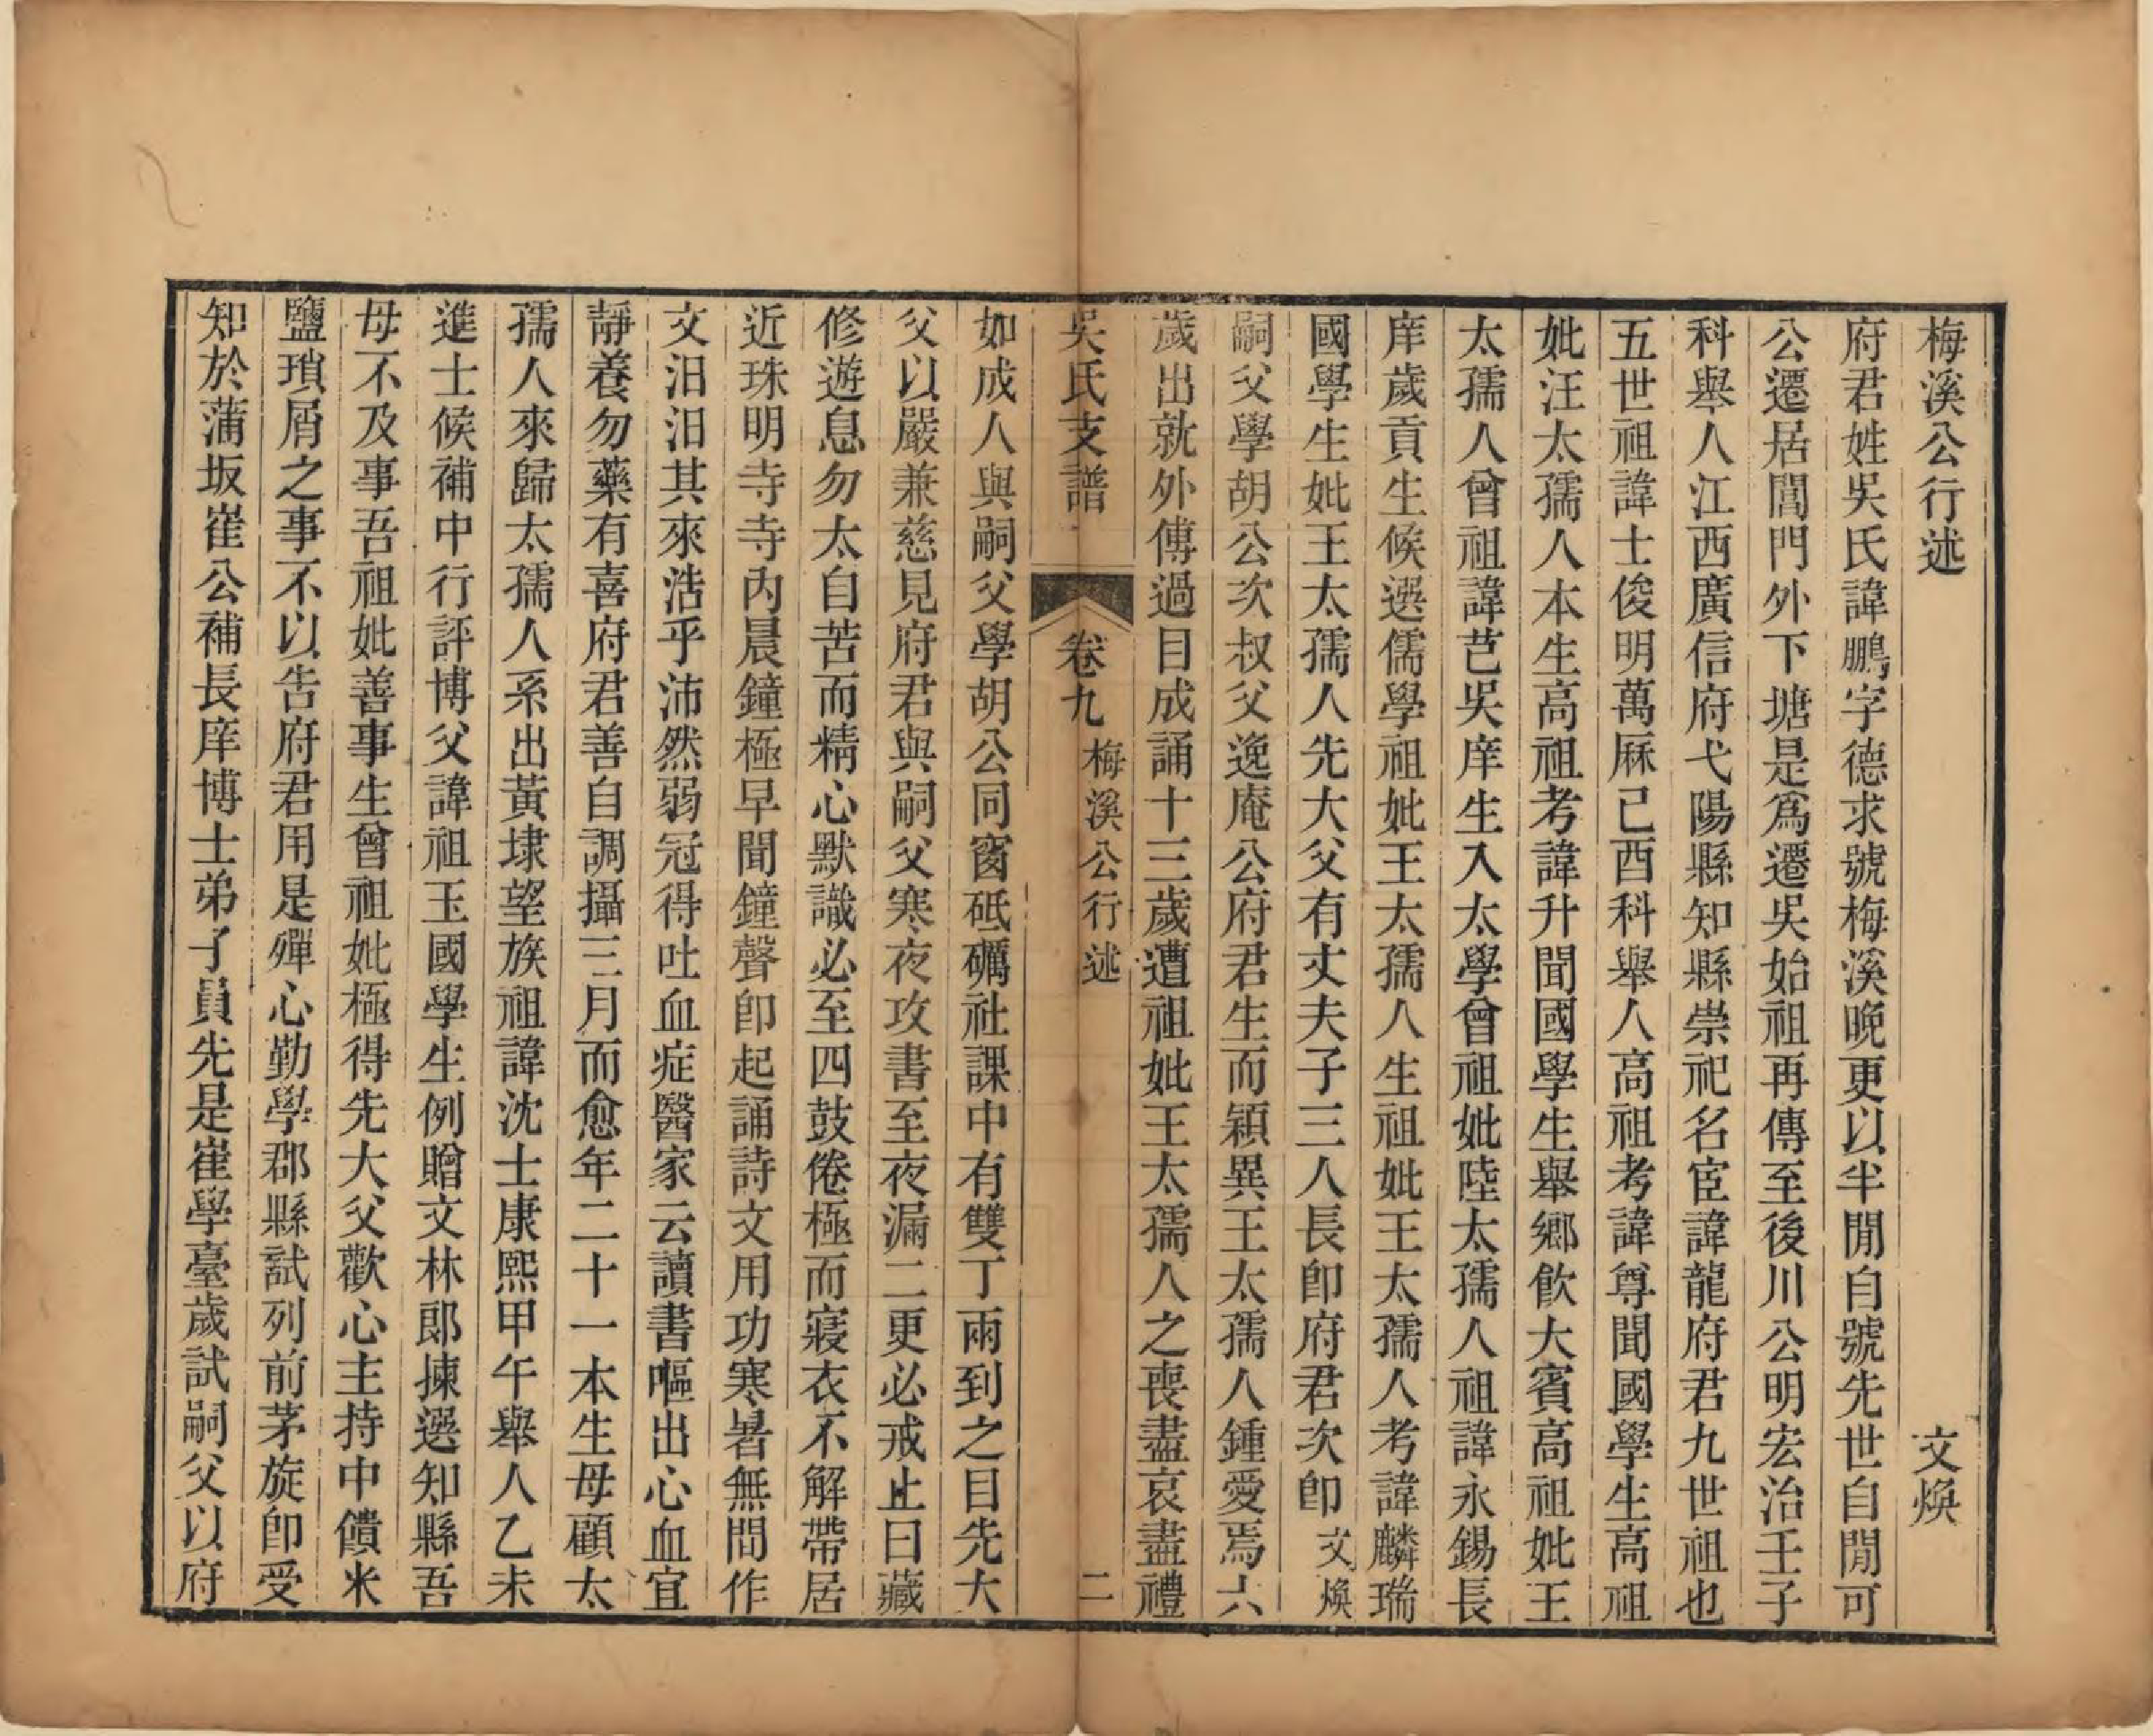 梅溪公行述　文煥
府君姓吳氏諱鵬字德求號梅溪晚更以半閒自號先世自閒可
公遷居閶門外下塘是爲遷吳始祖再傳至後川公明宏治壬子
科舉人江西廣信府弋陽縣知縣崇祀名宦諱龍府君九世祖也
五世祖諱士俊明萬厤己酉科舉人高祖考諱尊聞國學生高祖
妣汪太孺人本生高祖考諱升聞國學生舉鄉飲大賓高祖妣王
太孺人曾祖諱芑吳庠生入太學曾祖妣陸太孺人祖諱永錫長
庠歲貢生候選儒學祖妣王太孺人生祖妣王太孺人考諱麟瑞
國學生妣王太孺人先大父有丈夫子三人長卽府君次卽文煥
嗣父學胡公次叔父逸庵公府君生而穎異王太孺人鍾愛焉六
歲出就外傅過目成誦十三歲遭祖妣王太孺人之喪盡哀盡禮
吳氏支譜　卷九　梅溪公行述　二
如成人與嗣父學胡公同窗砥礪社課中有雙丁兩到之目先大
父以嚴兼慈見府君與嗣父寒夜攻書至夜漏二更必戒止曰藏
修遊息勿太自苦而精心默識必至四鼓倦極而寢衣不解帶居
近珠明寺寺內晨鐘極早聞鐘聲卽起誦詩文用功寒暑無間作
文汨汨其來浩乎沛然弱冠得吐血症醫家云讀書嘔出心血宜
靜養勿藥有喜府君善自調攝三月而愈年二十一本生母顧太
孺人來歸太孺人系出黃埭望族祖諱沈士康熙甲午舉人乙未
進士候補中行評博父諱祖玉國學生例贈文林郎揀選知縣吾
母不及事吾祖妣善事生曾祖妣極得先大父歡心主持中饋米
鹽瑣屑之事不以告府君用是殫心勤學郡縣試列前茅旋卽受
知於蒲坂崔公補長庠博士弟子員先是崔學臺歲試嗣父以府